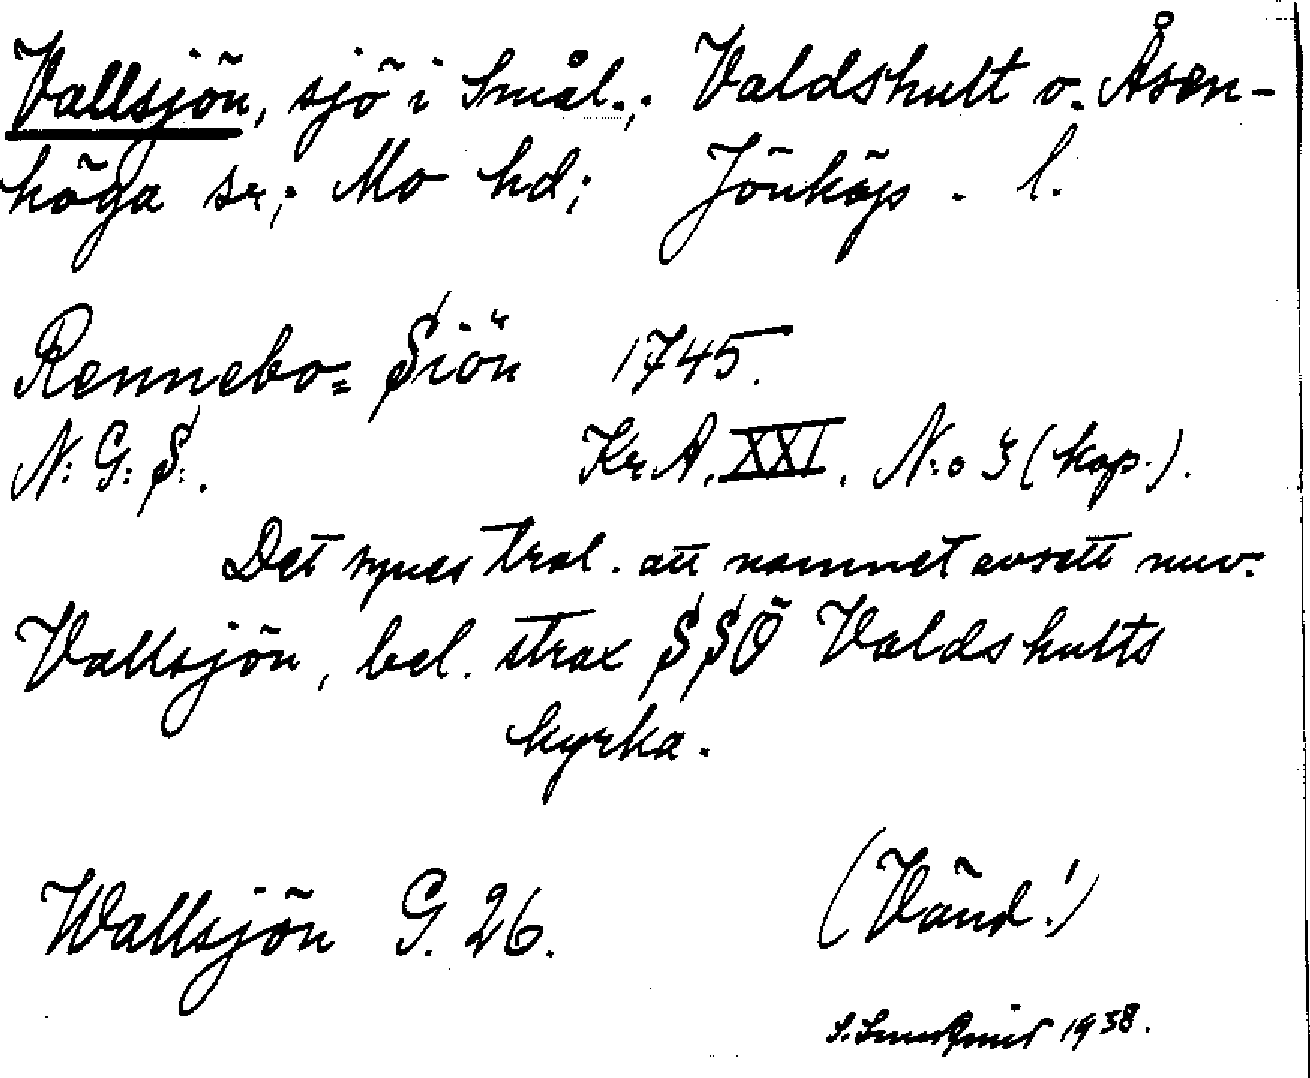 Vallsjön, sjö i Smål.; Valdshult o. Åsen-
höga sr; Mo hd; Jönköp. l.
Rennebo= Siön 1745.
N: G: S:. Kr A. XXI. N:o 3 (kop.).
Det synes trol. att namnet avsett nuv.
Vallsjön, bel. strax SSÖ Valdshults
kyrka.
Wallsjön G. 26.
(Vänd!)
1938.